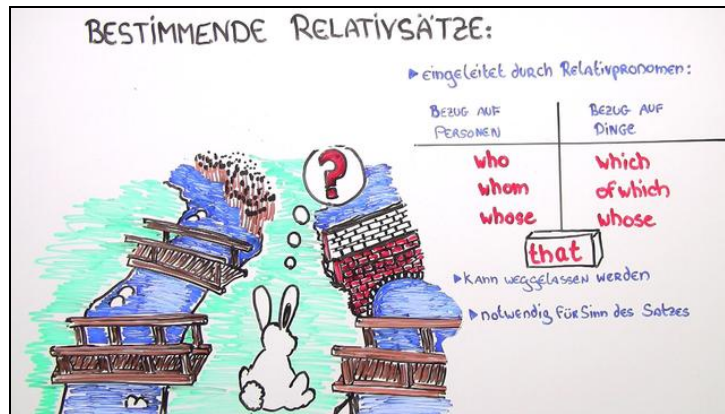 BESTIMMENDE RELATIVSÄTZE:
▸ eingeleitet durch Relativpronomen:
BEZUG AUF PERSONEN
BEZUG AUF DINGE
who which
whom of which
whose whose
that
▸ kann weggelassen werden
▸ notwendig für Sinn des Satzes
?